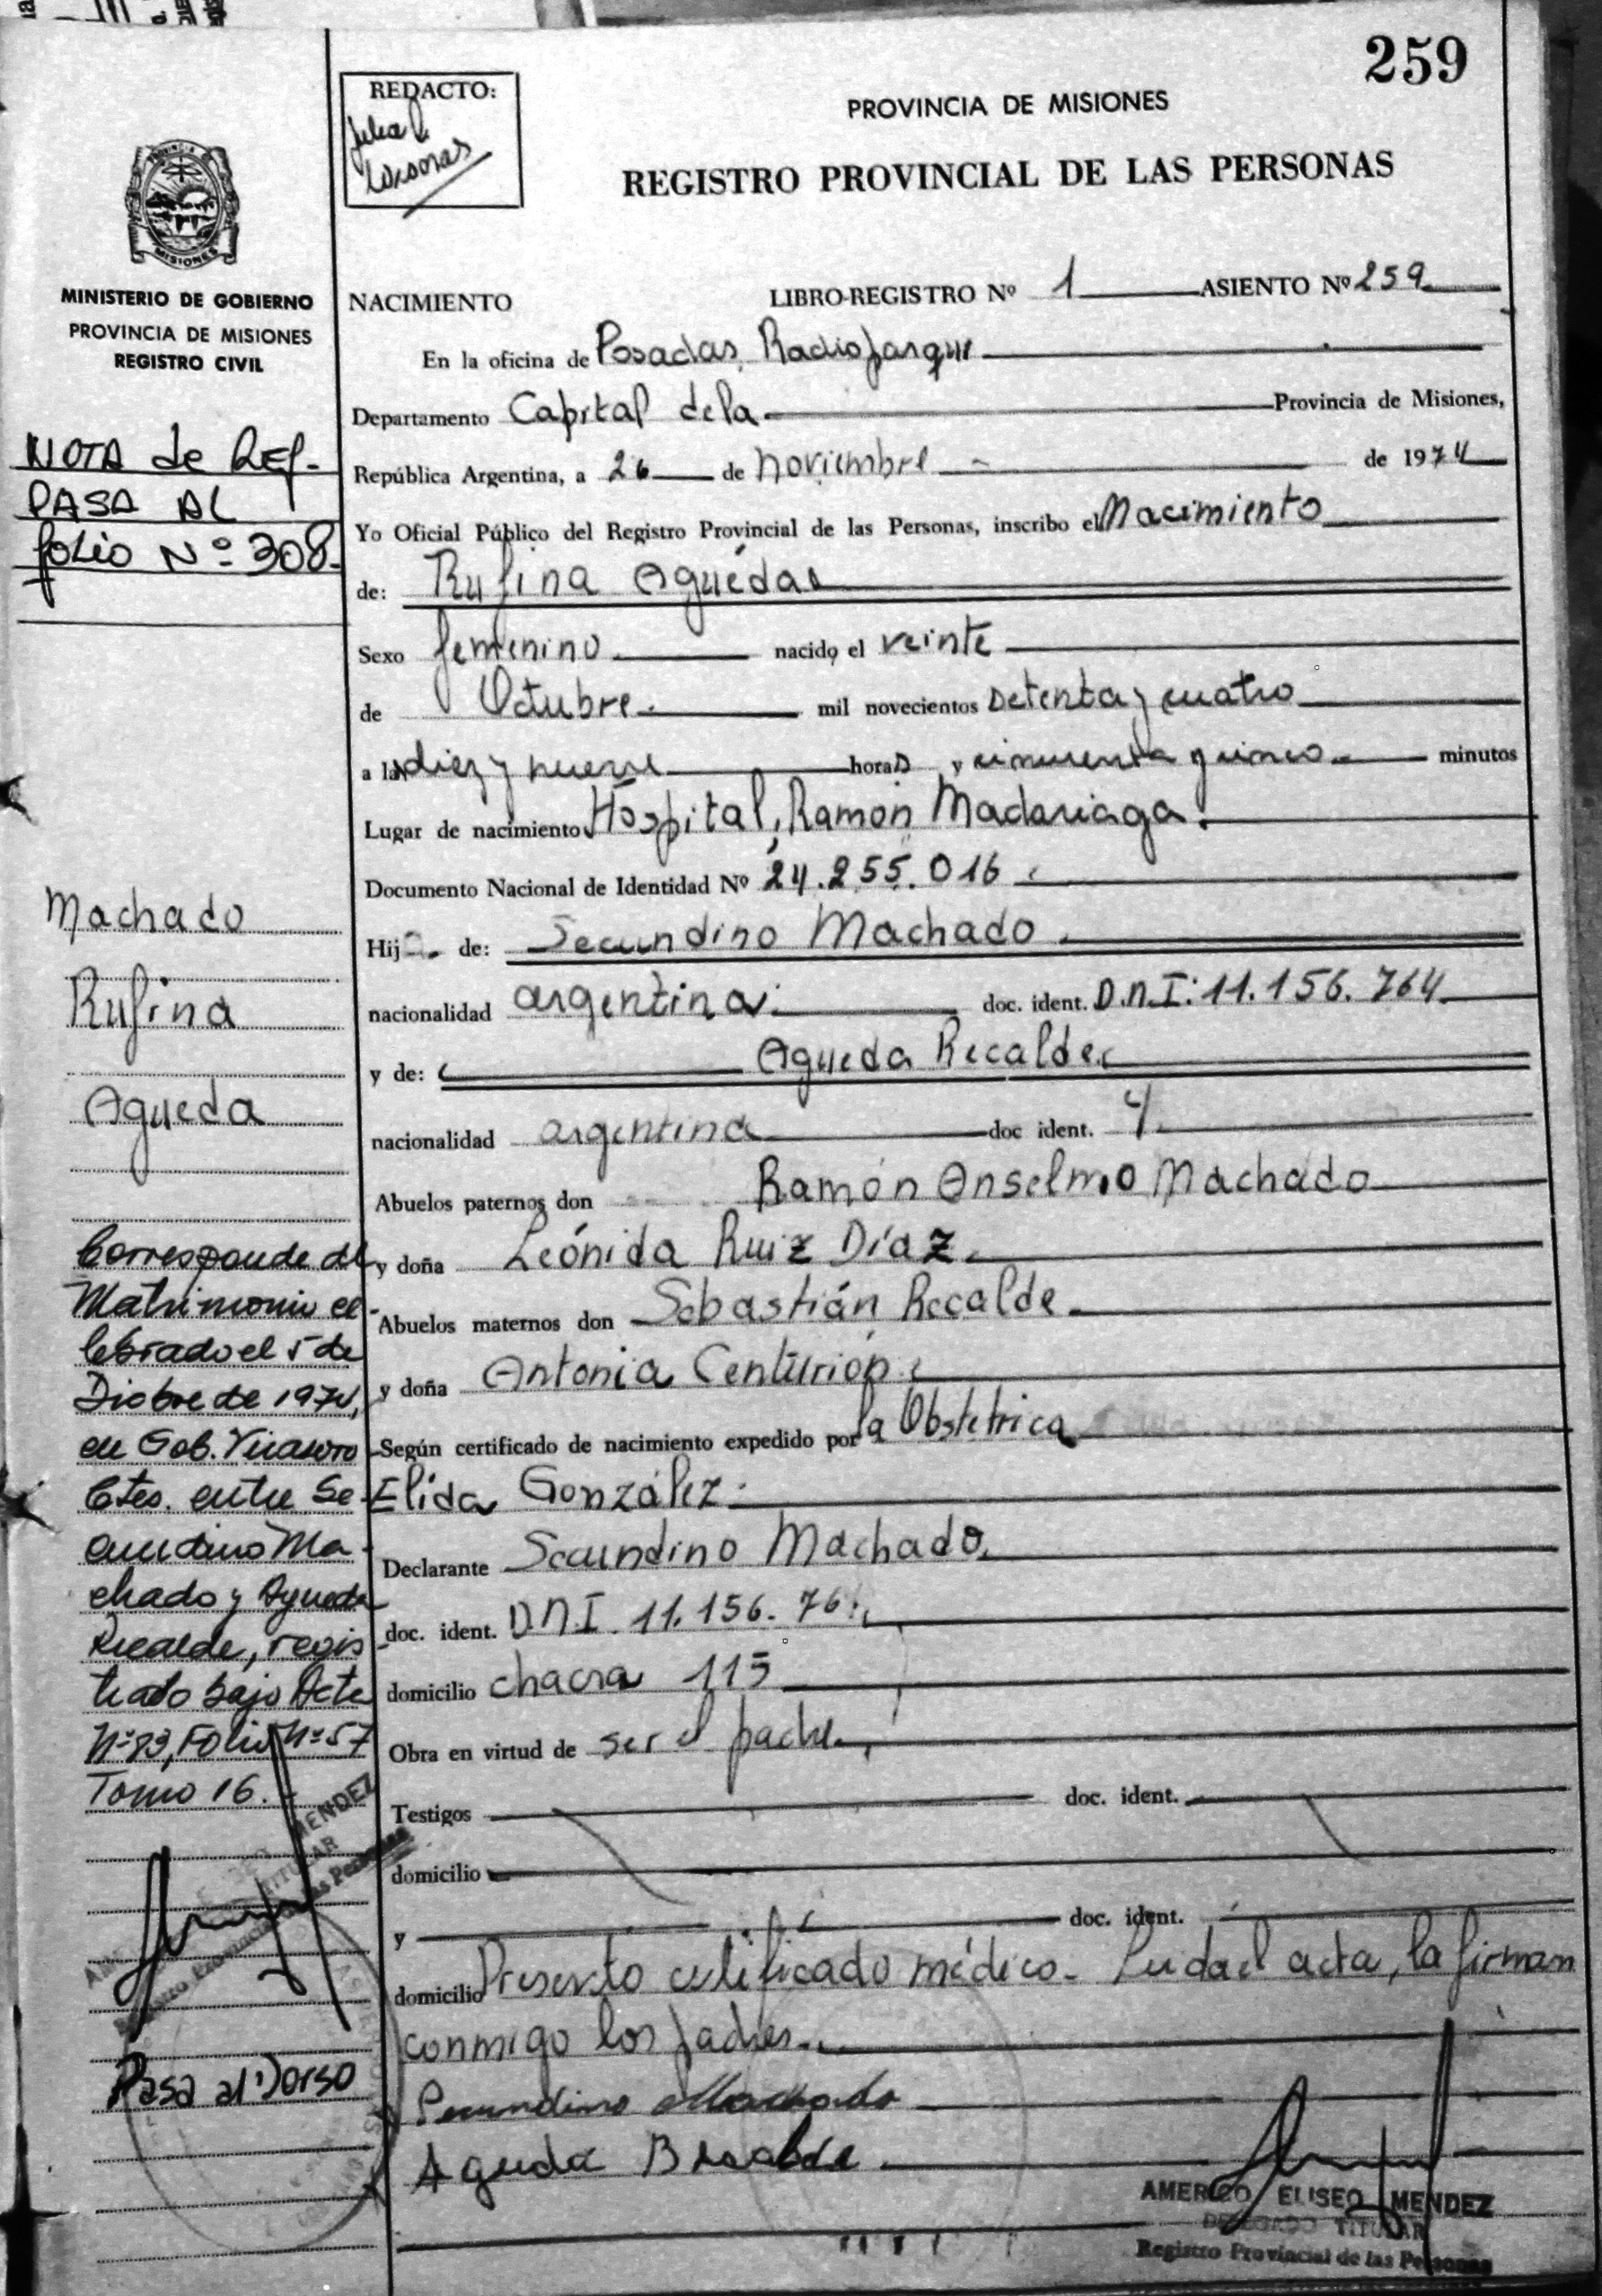 259
REDACTO:
PROVINCIA DE MISIONES
REGISTRO PROVINCIAL DE LAS PERSONAS
MISIONES
MINISTERIO DE GOBIERNO
PROVINCIA DE MISIONES
REGISTRO CIVIL
NOTA de REF-
PASA AL
folio Nº 308-
Machado
Rufina
Agueda
Corresponde al
Matrimonio ce-
lebrado el 5 de
Dicbre de 1974,
en Gob. Virasoro
Ctes. entre Se-
cundino Ma-
chado y Agueda
Recalde, regis-
trado bajo Acta
Nº 83, Folio Nº 57
Tomo 16.-
Pasa al Dorso
NACIMIENTO LIBRO-REGISTRO Nº 1 ASIENTO Nº 259
En la oficina de Posadas, Radio Parque
Departamento Capital de la Provincia de Misiones,
República Argentina, a 26 de noviembre de 1974
Yo Oficial Público del Registro Provincial de las Personas, inscribo el Nacimiento
de: Rufina Agueda
Sexo femenino nacido el veinte
de Octubre mil novecientos setenta y cuatro
a las diez y nueve horas y cincuenta y cinco minutos
Lugar de nacimiento Hospital, Ramón Madariaga.
Documento Nacional de Identidad Nº 24.255.016
Hija de: Secundino Machado
nacionalidad argentina doc. ident. D.N.I: 11.156.764
y de: Agueda Recalde
nacionalidad argentina doc ident.
Abuelos paternos don Ramón Anselmo Machado
y doña Leónida Ruiz Díaz
Abuelos maternos don Sebastián Recalde
y doña Antonia Centurión
Según certificado de nacimiento expedido por la Obstetrica
Elida González
Declarante Secundino Machado
doc. ident. D.N.I. 11.156.764
domicilio chacra 115
Obra en virtud de ser el padre
Testigos doc. ident.
domicilio
y doc. ident.
domicilio Presento certificado médico- Leida el acta, la firman
conmigo los padres.
Secundino Machado
Agueda Recalde
AMERICO ELISEO MENDEZ
DELEGADO TITULAR
Registro Provincial de las Personas